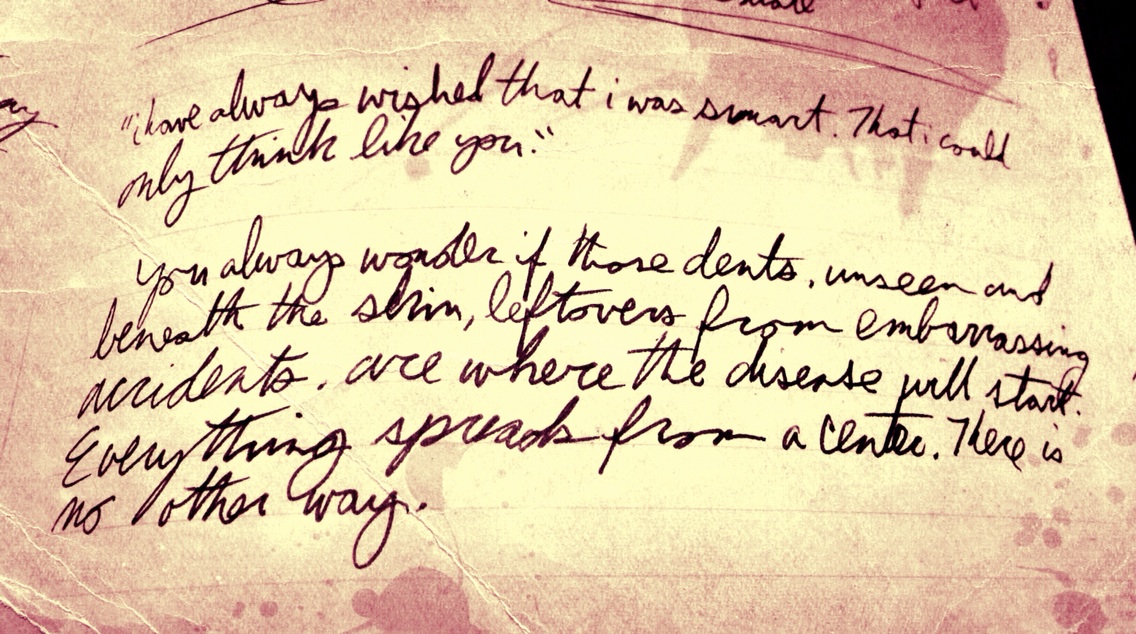 "i have always wished that i was smart. That i could
only think like you."
you always wonder if those dents, unseen and
beneath the skin, leftovers from embarrassing
accidents, are where the disease will start.
Everything spreads from a center. There is
no other way.